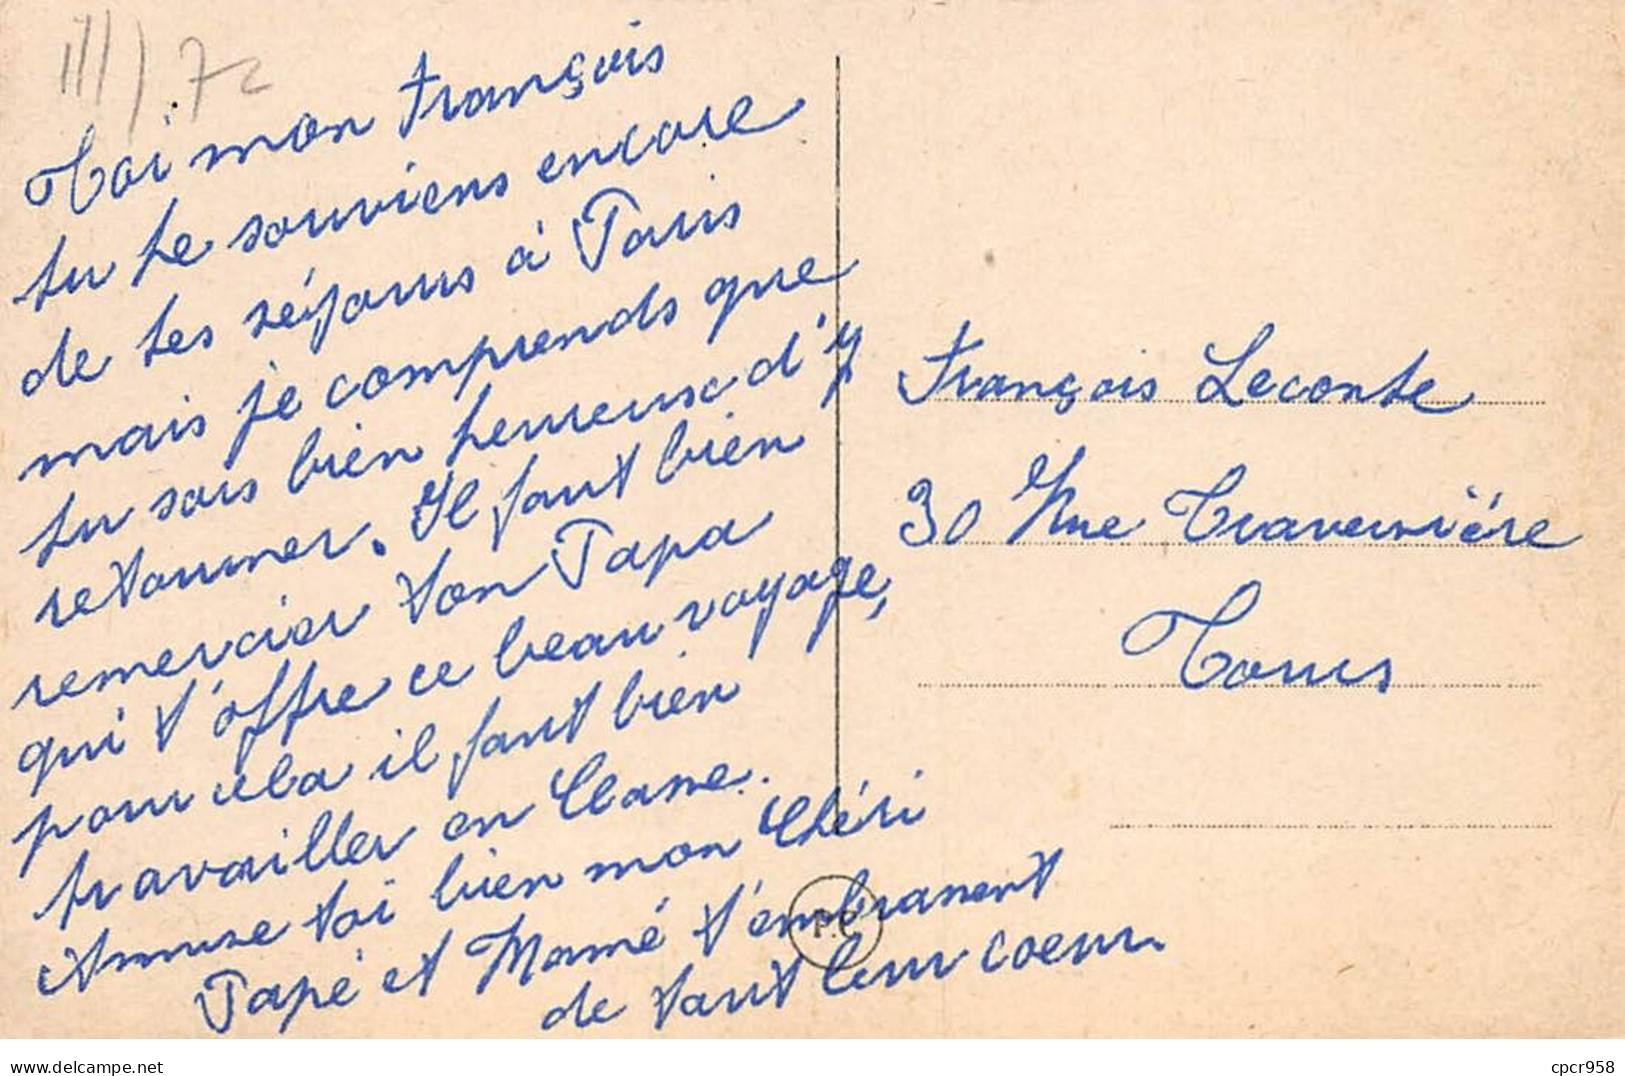 III) 72
Toi mon François
tu te souviens encore
de tes séjours à Paris
mais je comprends que
tu sois bien heureux d'y
retourner. Il faut bien
remercier ton Papa
qui t'offre ce beau voyage,
pour cela il faut bien
travailler en Classe.
Amuse toi bien mon Chéri
Papé et Mamé t'embrassent
de tout leur coeur.
P.C
François Leconte
30 Rue Traversière
Tours
delcampe.net
cpcr958